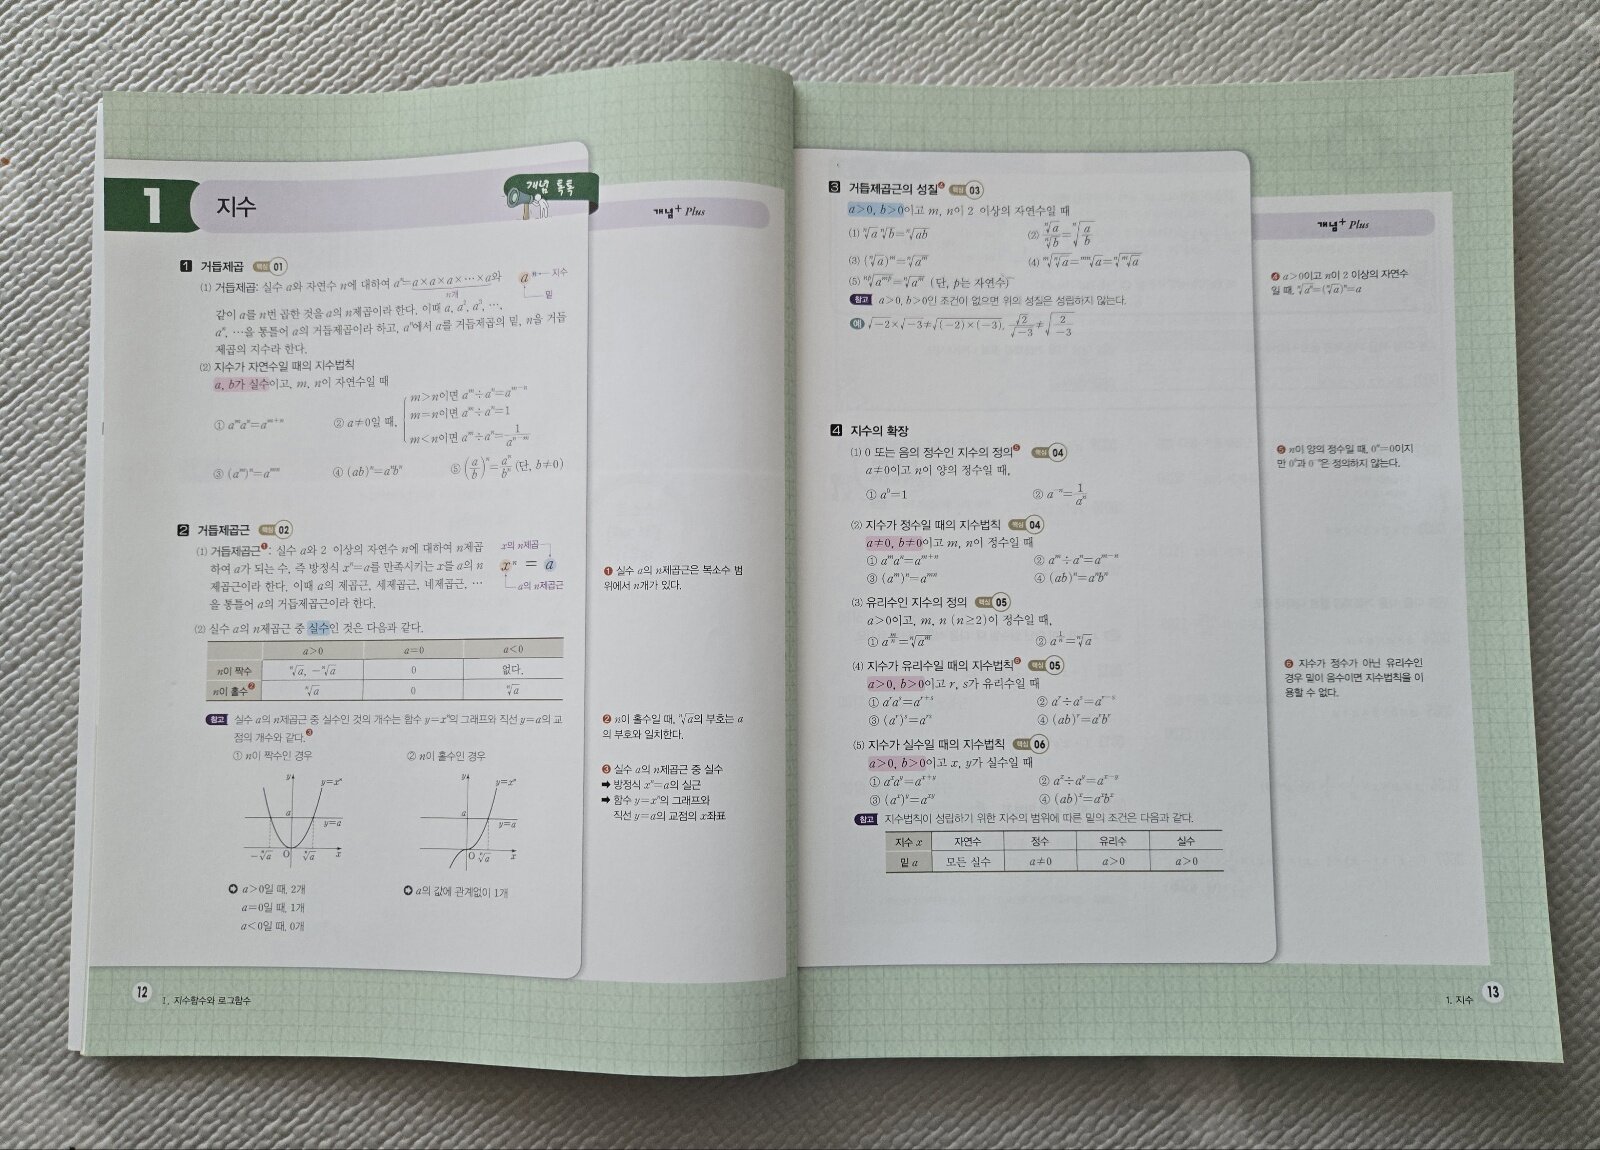 1 지수
개념 톡톡
개념+ Plus
1 거듭제곱 핵심 01
(1) 거듭제곱: 실수 a와 자연수 n에 대하여 aⁿ=a×a×a×⋯×a와
n개
aⁿ 지수
밑
같이 a를 n번 곱한 것을 a의 n제곱이라 한다. 이때 a, a², a³, ⋯,
aⁿ, ⋯을 통틀어 a의 거듭제곱이라 하고, aⁿ에서 a를 거듭제곱의 밑, n을 거듭
제곱의 지수라 한다.
(2) 지수가 자연수일 때의 지수법칙
a, b가 실수이고, m, n이 자연수일 때
① aᵐaⁿ=aᵐ⁺ⁿ ② a≠0일 때,
m>n이면 aᵐ÷aⁿ=aᵐ⁻ⁿ
m=n이면 aᵐ÷aⁿ=1
m<n이면 aᵐ÷aⁿ=1/aⁿ⁻ᵐ
③ (aᵐ)ⁿ=aᵐⁿ ④ (ab)ⁿ=aⁿbⁿ ⑤ (a/b)ⁿ=aⁿ/bⁿ (단, b≠0)
2 거듭제곱근 핵심 02
(1) 거듭제곱근❶: 실수 a와 2 이상의 자연수 n에 대하여 n제곱
하여 a가 되는 수, 즉 방정식 xⁿ=a를 만족시키는 x를 a의 n
제곱근이라 한다. 이때 a의 제곱근, 세제곱근, 네제곱근, ⋯
을 통틀어 a의 거듭제곱근이라 한다.
x의 n제곱
xⁿ = a
a의 n제곱근
(2) 실수 a의 n제곱근 중 실수인 것은 다음과 같다.
a>0 a=0 a<0
n이 짝수 ⁿ√a, −ⁿ√a 0 없다.
n이 홀수❷ ⁿ√a 0 ⁿ√a
참고 실수 a의 n제곱근 중 실수인 것의 개수는 함수 y=xⁿ의 그래프와 직선 y=a의 교
점의 개수와 같다.❸
① n이 짝수인 경우 ② n이 홀수인 경우
y y=xⁿ
a
y=a
−ⁿ√a O ⁿ√a x
y y=xⁿ
a
y=a
O ⁿ√a x
➲ a>0일 때, 2개
a=0일 때, 1개
a<0일 때, 0개
➲ a의 값에 관계없이 1개
❶ 실수 a의 n제곱근은 복소수 범
위에서 n개가 있다.
❷ n이 홀수일 때, ⁿ√a의 부호는 a
의 부호와 일치한다.
❸ 실수 a의 n제곱근 중 실수
➡ 방정식 xⁿ=a의 실근
➡ 함수 y=xⁿ의 그래프와
직선 y=a의 교점의 x좌표
12 Ⅰ. 지수함수와 로그함수
3 거듭제곱근의 성질❹ 핵심 03
a>0, b>0이고 m, n이 2 이상의 자연수일 때
(1) ⁿ√a ⁿ√b=ⁿ√ab (2) ⁿ√a/ⁿ√b=ⁿ√(a/b)
(3) (ⁿ√a)ᵐ=ⁿ√aᵐ (4) ᵐ√ⁿ√a=ᵐⁿ√a=ⁿ√ᵐ√a
(5) ⁿᵖ√aᵐᵖ=ⁿ√aᵐ (단, p는 자연수)
참고 a>0, b>0인 조건이 없으면 위의 성질은 성립하지 않는다.
예 √−2×√−3≠√(−2)×(−3), √2/√−3≠√(2/−3)
4 지수의 확장
(1) 0 또는 음의 정수인 지수의 정의❺ 핵심 04
a≠0이고 n이 양의 정수일 때,
① a⁰=1 ② a⁻ⁿ=1/aⁿ
(2) 지수가 정수일 때의 지수법칙 핵심 04
a≠0, b≠0이고 m, n이 정수일 때
① aᵐaⁿ=aᵐ⁺ⁿ ② aᵐ÷aⁿ=aᵐ⁻ⁿ
③ (aᵐ)ⁿ=aᵐⁿ ④ (ab)ⁿ=aⁿbⁿ
(3) 유리수인 지수의 정의 핵심 05
a>0이고, m, n (n≥2)이 정수일 때,
① a^(m/n)=ⁿ√aᵐ ② a^(1/n)=ⁿ√a
(4) 지수가 유리수일 때의 지수법칙❻ 핵심 05
a>0, b>0이고 r, s가 유리수일 때
① aʳaˢ=aʳ⁺ˢ ② aʳ÷aˢ=aʳ⁻ˢ
③ (aʳ)ˢ=aʳˢ ④ (ab)ʳ=aʳbʳ
(5) 지수가 실수일 때의 지수법칙 핵심 06
a>0, b>0이고 x, y가 실수일 때
① aˣaʸ=aˣ⁺ʸ ② aˣ÷aʸ=aˣ⁻ʸ
③ (aˣ)ʸ=aˣʸ ④ (ab)ˣ=aˣbˣ
참고 지수법칙이 성립하기 위한 지수의 범위에 따른 밑의 조건은 다음과 같다.
지수 x 자연수 정수 유리수 실수
밑 a 모든 실수 a≠0 a>0 a>0
개념+ Plus
❹ a>0이고 n이 2 이상의 자연수
일 때, ⁿ√aⁿ=(ⁿ√a)ⁿ=a
❺ n이 양의 정수일 때, 0ⁿ=0이지
만 0⁰과 0⁻ⁿ은 정의하지 않는다.
❻ 지수가 정수가 아닌 유리수인
경우 밑이 음수이면 지수법칙을 이
용할 수 없다.
1. 지수 13